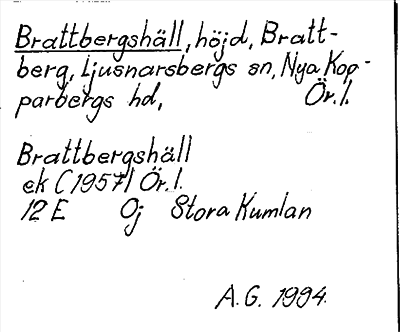 Brattbergshäll, höjd, Bratt-
berg, Ljusnarsbergs sn, Nya Kop-
parbergs hd, Ör. l.
Brattbergshäll
ek (1957) Ör. l.
12 E Oj Stora Kumlan
A. G. 1994.